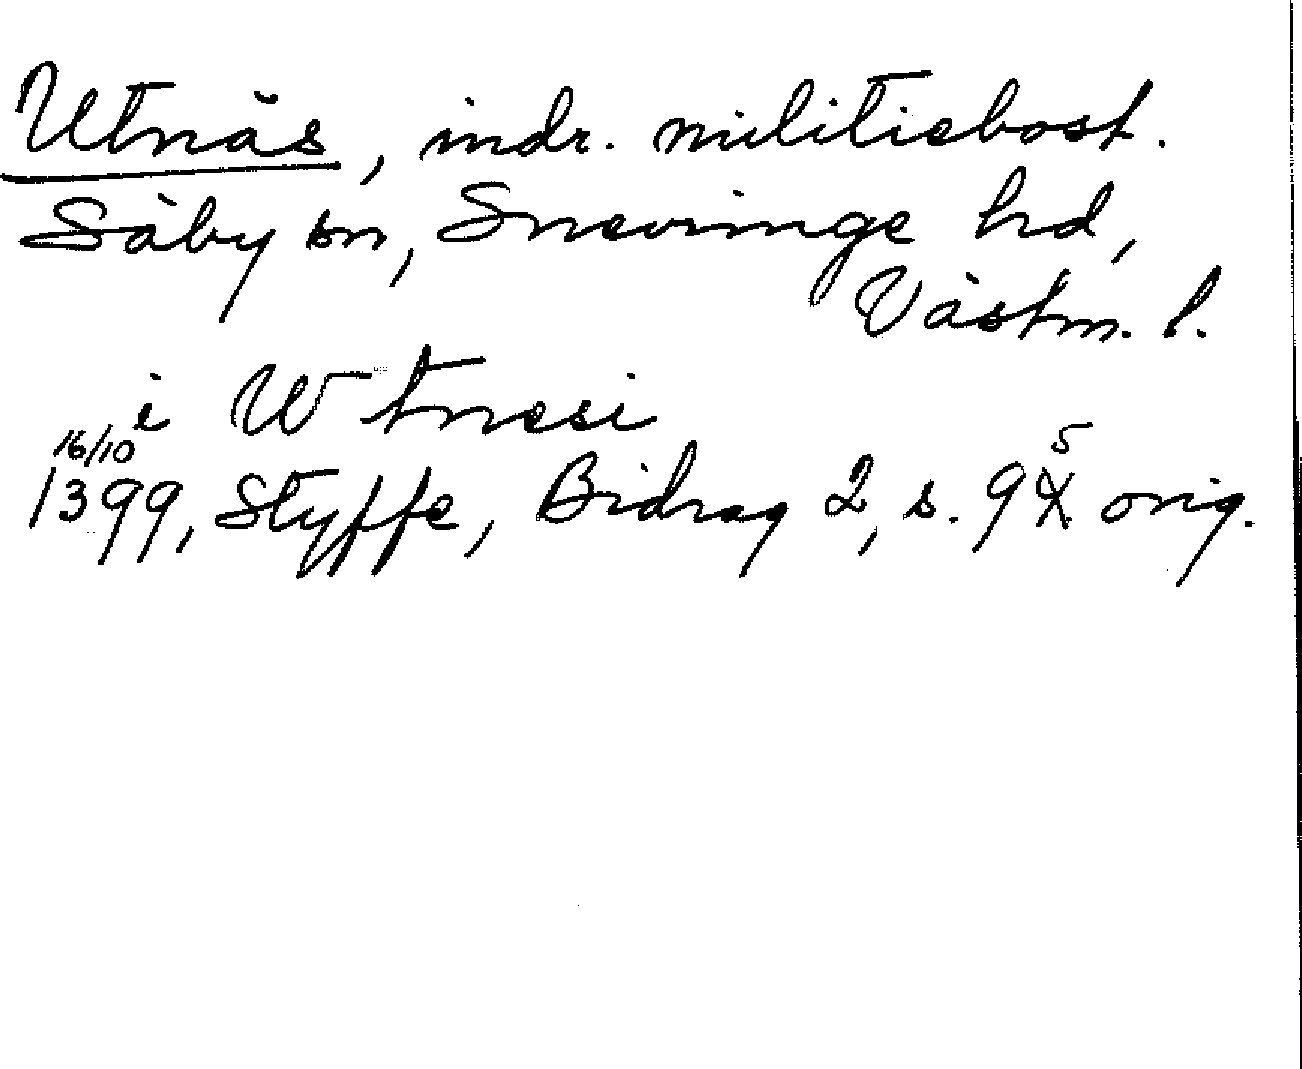 Utnäs, indr. militiebost.
Säby sn, Snevringe hd,
Västm. l.
i Wtnesi
16/10
1399, Styffe, Bidrag 2, s. 95 orig.